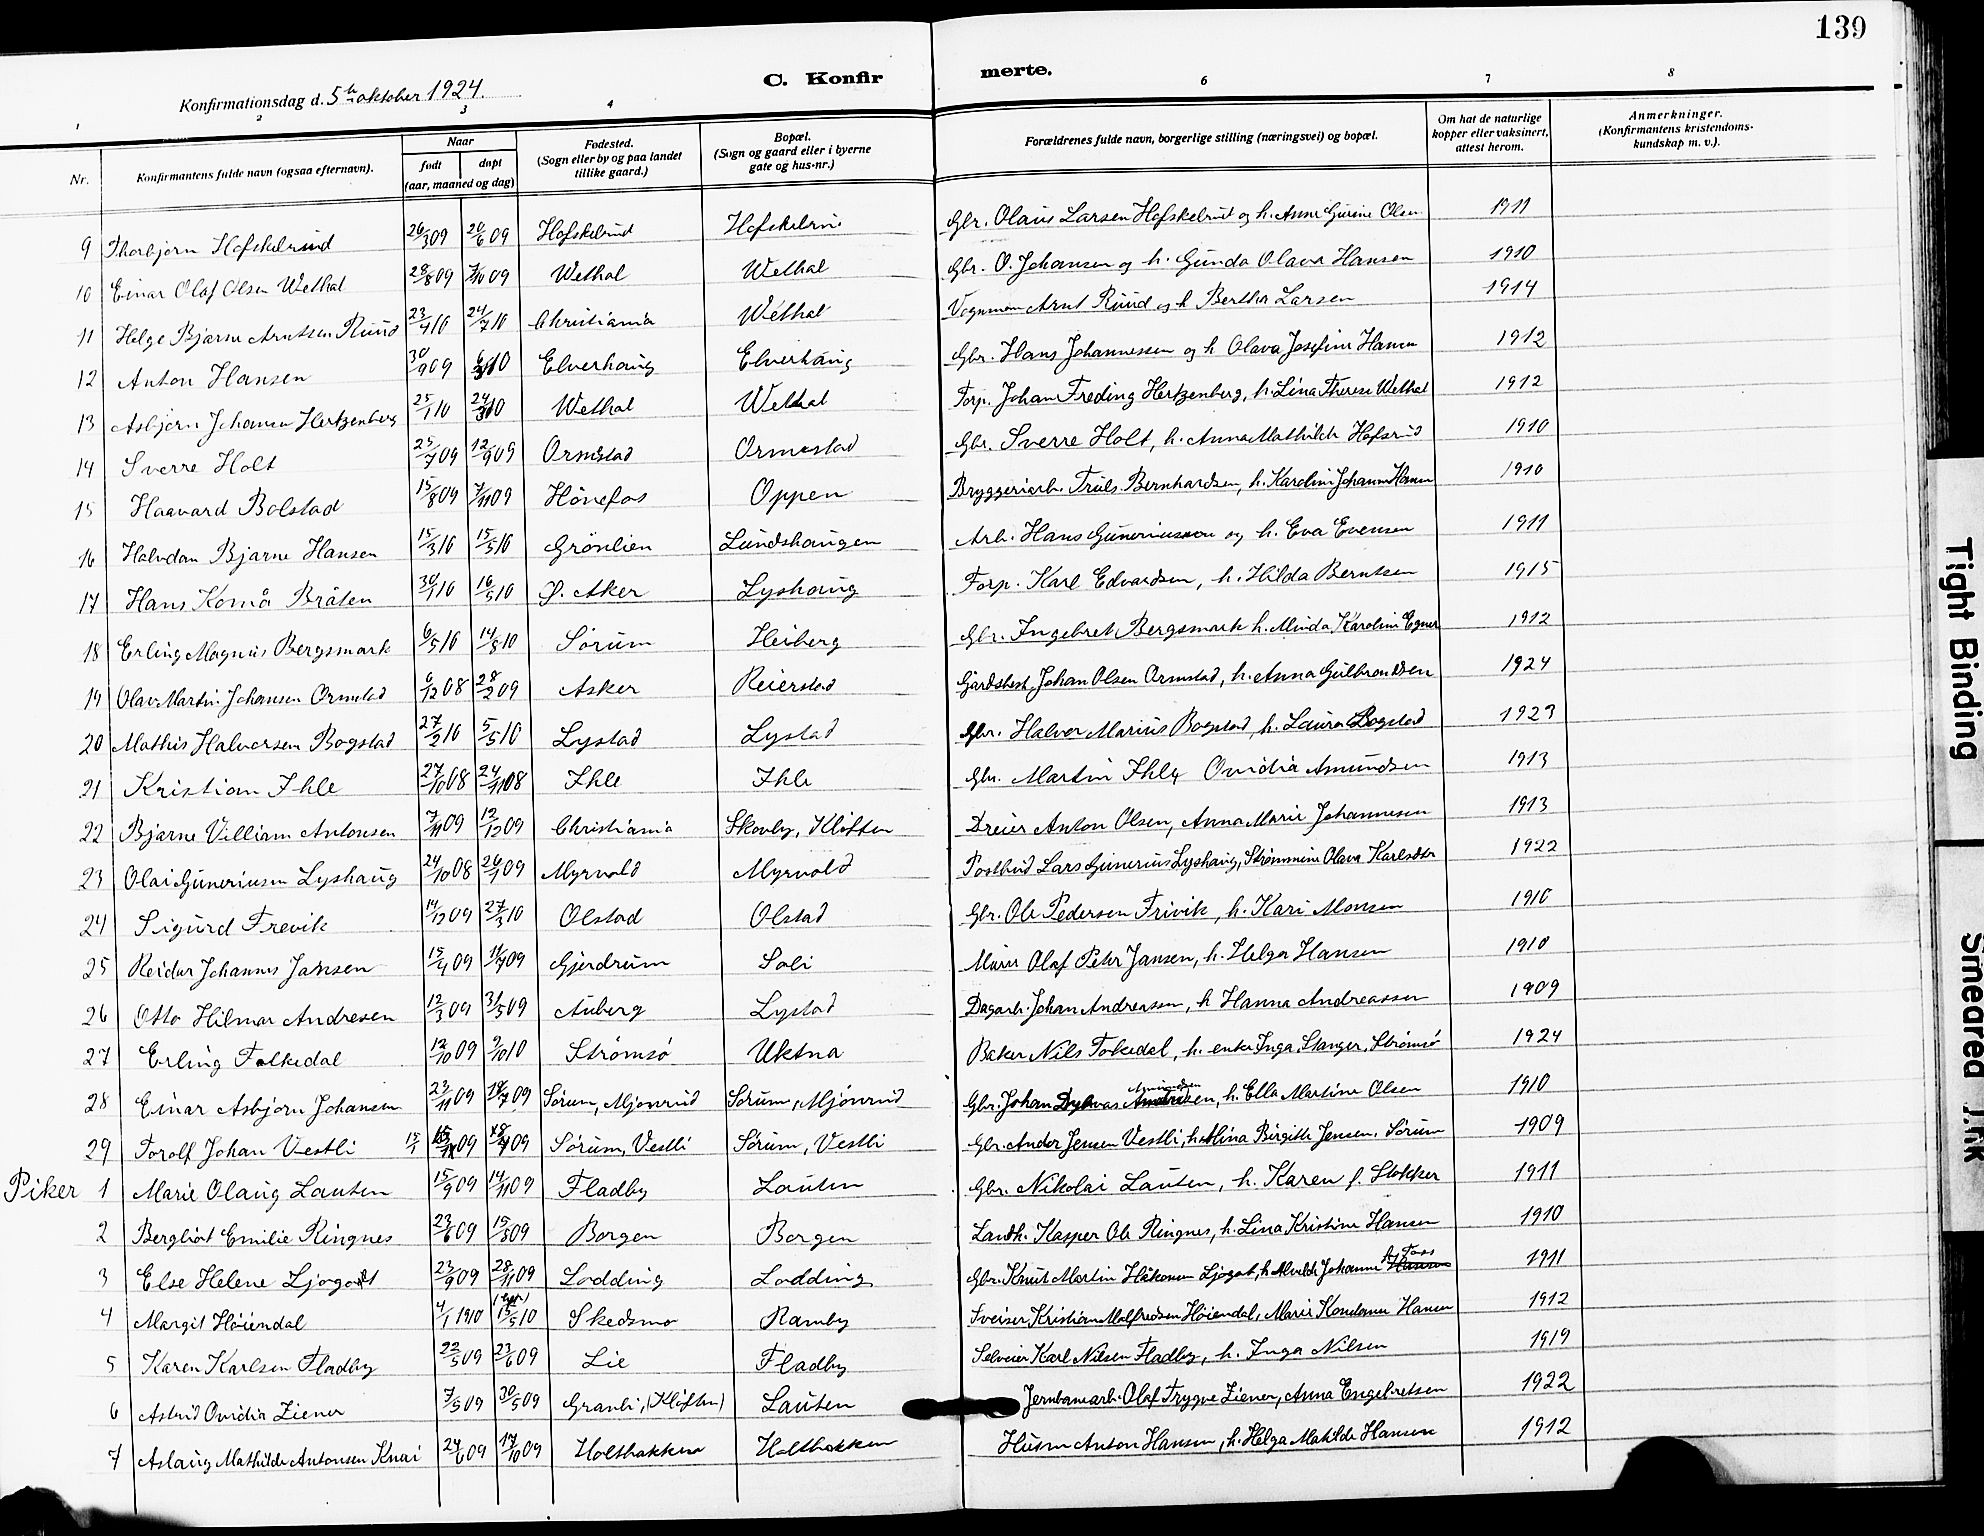 139
C. Konfirmerte.
Konfirmationsdag d. 5te oktober 1924.
1 2 3 4 6 7 8
Nr. Konfirmantens fulde navn (ogsaa efternavn). Naar født døpt (aar, maaned og dag) Fødested. (Sogn eller by og paa landet tillike gaard.) Bopæl. (Sogn og gaard eller i byerne gate og hus-nr.) Forældrenes fulde navn, borgerlige stilling (næringsvei) og bopæl. Om hat de naturlige kopper eller vaksinert, attest herom. Anmerkninger. (Konfirmantens kristendoms-kundskap m. v.).
9 Thorbjørn Hofskelrud 26/3 09 20/6 09 Hofskelrud Hofskelrud Gbr. Olaus Larsen Hofskelrud og h. Anne Gurine Olsen 1911
10 Einar Olaf Olsen Wethal 28/8 09 7/10 09 Wethal Wethal Gbr. O. Johansen og h. Gunda Olava Hansen 1910
11 Helge Bjarne Arntsen Ruud 23/4 10 24/7 10 Christiania Wethal Vognman Arnt Ruud og h Bertha Larsen 1914
12 Anton Hansen 30/9 09 10 Elverhaug Elverhaug Gbr. Hans Johannessen og h Olava Josefine Hansen 1912
13 Asbjørn Johansen Hertzenberg 25/1 10 24/3 10 Wethal Wethal Forp. Johan Freding Hertzenberg, h. Lina Therese Wethal 1912
14 Sverre Holt 25/7 09 12/9 09 Ormstad Ormestad Gbr. Sverre Holt, h. Anna Mathilde Hofsrud 1910
15 Haavard Bolstad 15/8 09 7/11 09 Hönefos Oppen Bryggeriarb. Truls Bernhardsen, h. Karoline Johanne Hansen 1910
16 Halvdan Bjarne Hansen 15/3 10 15/5 10 Grönlien Lundshaugen Arb. Hans Guneriussen og h. Eva Evensen 1911
17 Hans Komå Bråten 30/1 10 16/5 10 Ø. Aker Lyshaug Forp. Karl Edvardsen, h. Hilda Berntsen 1915
18 Erling Magnus Bergsmark 6/5 10 14/8 10 Sörum Heiberg Gbr. Ingebret Bergsmark h. Minda Karoline Egner 1912
19 Olav Martin Johansen Ormstad 6/12 08 28/2 09 Asker Reierstad Gårdsbest. Johan Olsen Ormstad, h. Anna Gulbrandsen 1924
20 Mathis Halvorsen Bogstad 27/2 10 5/5 10 Lystad Lystad Gbr. Halvor Marius Bogstad, h. Laura Bogstad 1923
21 Kristian Ihle 27/10 08 24/11 08 Ihle Ihle Gbr. Martin Ihle, Ovidia Amundsen 1913
22 Bjarne Villiam Antonsen 7/11 09 12/12 09 Christiania Skovby, Kløften Dreier Anton Olsen, Anna Marie Johannesen 1913
23 Olai Guneriusen Lyshaug 24/10 08 26/1 09 Myrvold Myrvold Postbud Lars Gunerius Lyshaug, Strømmine Olava Karlsdtr 1922
24 Sigurd Frevik 14/12 09 27/3 10 Olstad Olstad Gbr. Ole Pedersen Frivik, h. Kari Monsen 1910
25 Reidar Johannes Jansen 15/4 09 09 Gjerdrum Soli Murer Olaf Peter Jansen, h. Helga Hansen 1910
26 Otto Hilmar Andresen 12/3 09 31/5 09 Auberg Lystad Dagarb. Johan Andreassen, h Hanna Andreassen 1909
27 Erling Folkedal 12/10 09 9/10 10 Strömsö Uktna Baker Nils Folkedal, h. enke Inga Stanger, Strömsö 1924
28 Einar Asbjørn Johansen 23/11 09 09 Sörum, Mjönrud Sörum, Mjönrud Gbr. Johan Amundsen, h. Ella Martine Olsen 1910
29 Torolf Johan Vestli 15/1 09 18/4 09 Sörum, Vestli Sörum, Vestli Gbr. Ander Jensen Vestli, h. Alina Birgitte Jensen, Sörum 1909
Piker 1 Marie Olaug Lauten 15/9 09 14/11 09 Fladby Lauten Gbr. Nikolai Lauten, h. Karen f. Stokker 1911
2 Bergliot Emilie Ringnes 23/6 09 15/8 09 Borgen Borgen Landh. Kasper Ole Ringnes, h. Lina Kristine Hansen 1910
3 Else Helene Ljøgodt 23/9 09 28/11 09 Lodding Lodding Gbr. Knut Martin Håkonsen Ljøgot, h. Johanne 1911
4 Margit Höiendal 4/1 1910 15/5 10 Skedsmo Ramby Sveiser Kristian Alfredsen Höiendal, Marie Konstanse Hansen 1912
5 Karen Karlsen Fladby 22/5 09 23/6 09 Lie Fladby Selveier Karl Nilsen Fladby, h. Inga Nilsen 1919
6 Astrid Ovidia Ziener 7/5 09 30/5 09 Granli, (Kløften) Lauten Jernbanearb. Olaf Trygve Ziener, Anna Engebretsen 1922
7 Aslaug Mathilde Antonsen Knai 24/6 09 17/10 09 Holtbakken Holtbakken Husm Anton Hansen, h. Helga Matilde Hansen 1912
Tight Binding
Smeared Ink